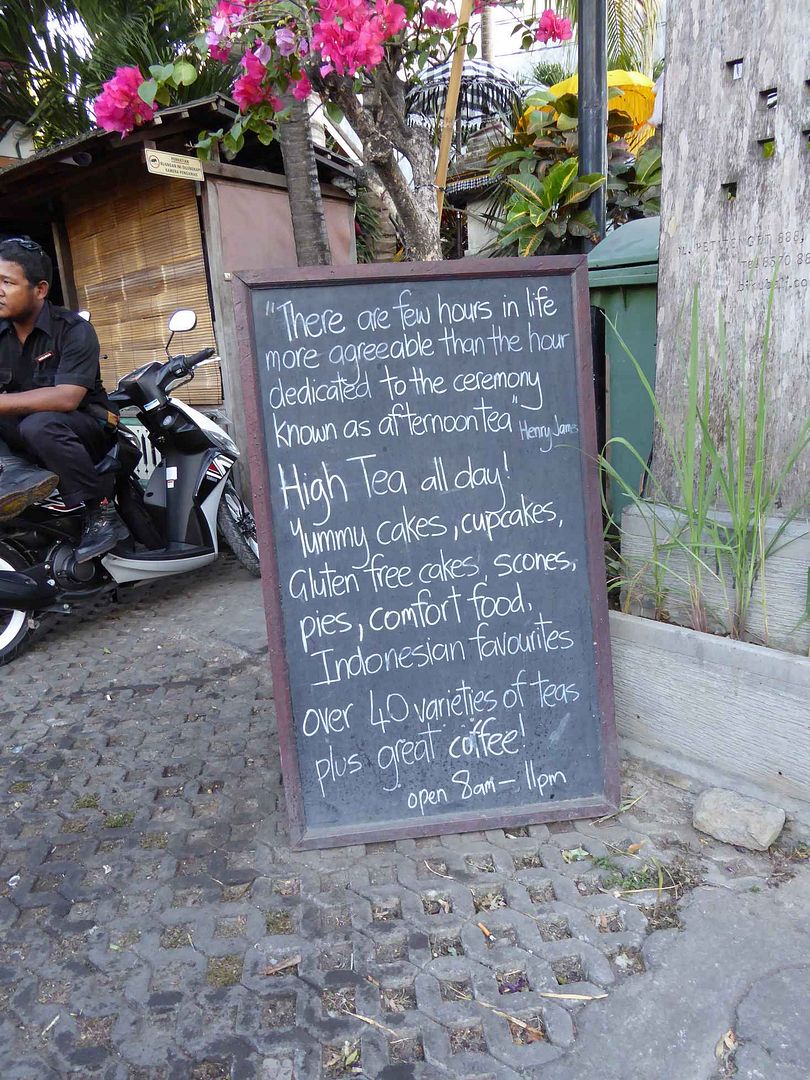 "There are few hours in life
more agreeable than the hour
dedicated to the ceremony
known as afternoon tea"
Henry James
High Tea all day!
Yummy cakes, cupcakes,
Gluten free cakes, scones,
pies, comfort food,
Indonesian favourites
over 40 varieties of teas
plus great coffee!
open 8am - 11pm
PERHATIAN
KAMERA PENGAWAS